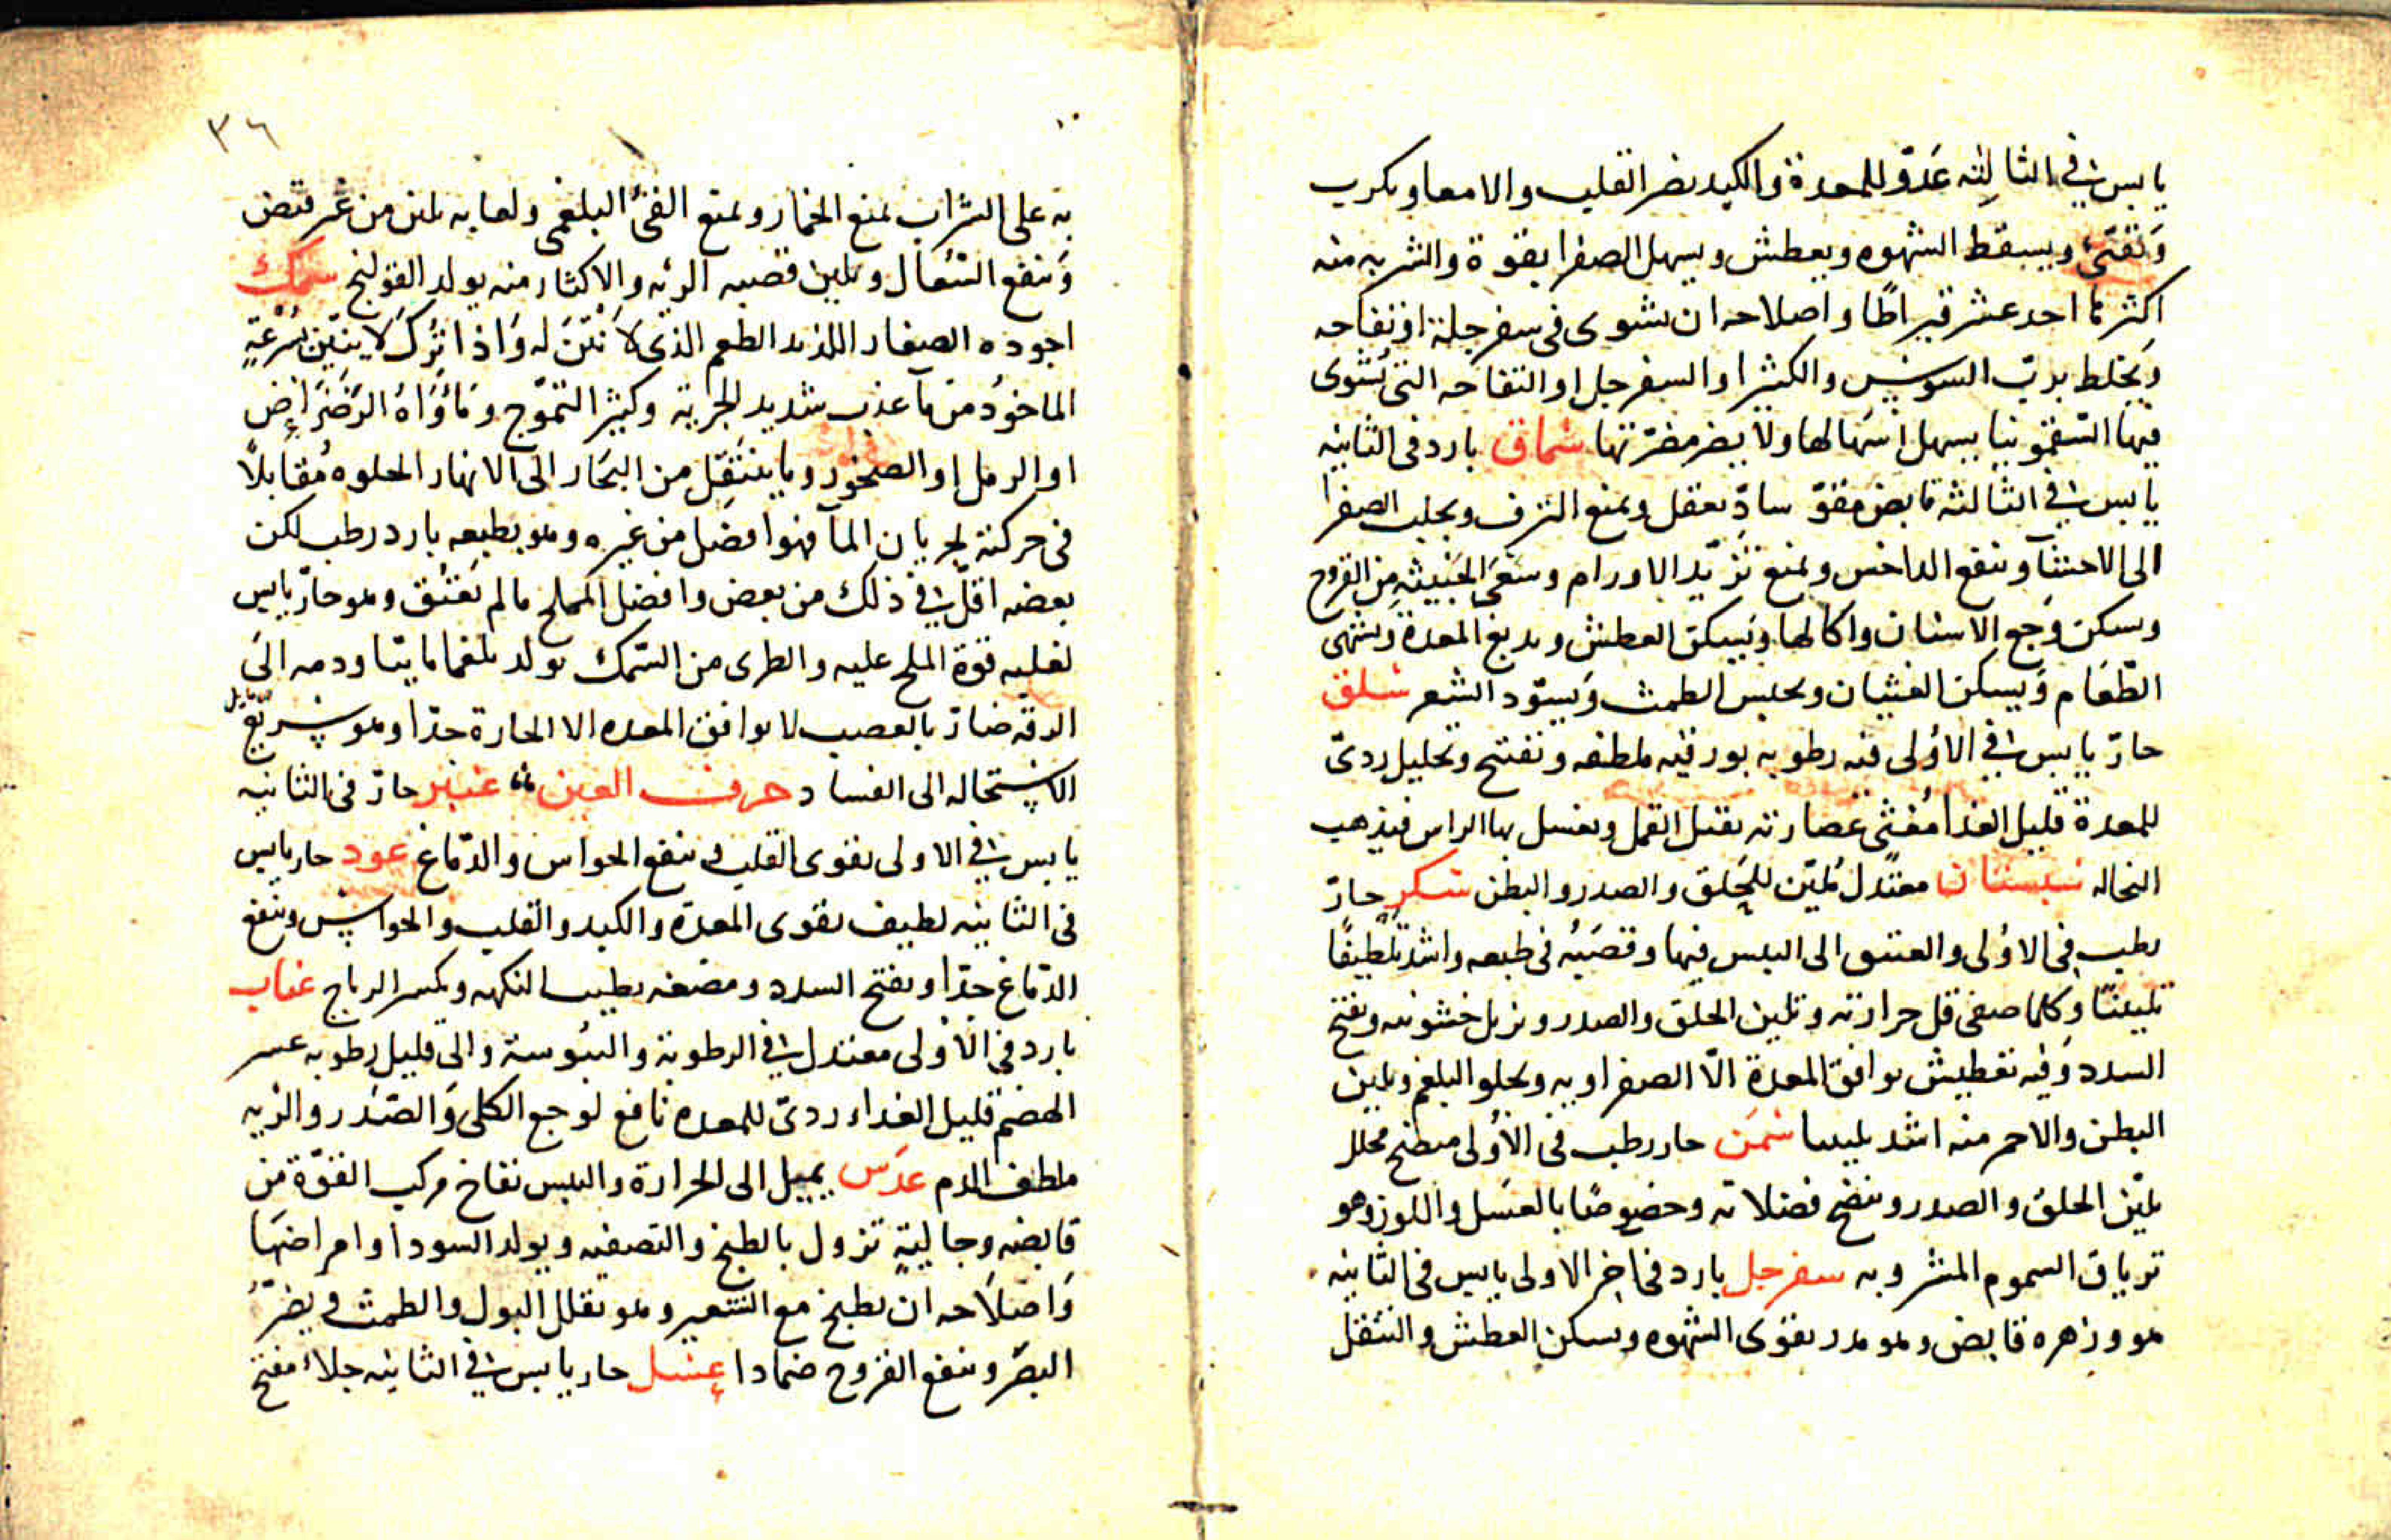 يابس في الثالثه عَدوّ للمعدة والكبد يضر القلب والامعا ويكرب
وَيُغثي ويسقط الشهوه ويعطش ويسهل الصفرا بقوة والشربه منه
اكثرها احد عشر قيراطًا واصلاحه ان يشوى في سفرجلة او تفاحه
وَيخلط بربّ السوس والكثيرا والسفرجل او التفاحه التي تُشوى
فيها السّقمونيا يسهل اسهالها ولا يضر مضرّتها سُماق بارد في الثانيه
يابس في الثالثه قابض مقوّ سادّ يعقل ويمنع النزف ويجلب الصفرا
الى الاحشآ وينفع الداحس ويمنع تزيّد الاورام وسَعىَ الخبيثه من القروح
وسكن وَجع الاسنان واكالها وَيسكن العطش ويدبغ المعدة ويشهى
الطّعَام وَيسكن الغثيان ويحبس الطمث وَيسوّد الشعر سلق
حارّ يابس في الاوُلى فيه رطوبه بورقيه ملطفه وتفتح وتحليل ردىّ
للمعدة قليل الغذا مُغثى عصارته يقتل القمل ويغسل بها الراس فيذهب
النخاله سبستان معتدل مُليّن للحَلق والصدر والبطن سكر حارّ
رطب في الاوُلى والعتيق الى اليبس فيها وقصَبُه في طبعه واشد تلطيفًا
تليينًا وكلما صفى قل حرارته وتليين الحلق والصدر ويزيل خشونته ويفتح
السدد وَفيه تعطيش يوافق المعدة الّا الصفراويه ويجلو البلغم ويلين
البطن والاحمر منه اشد تليينا سَمَن حار رطب في الاوُلى منضج محلل
يليّن الحلق والصدر وينضج فضلاته وخصوصًا بالعسَل واللوز وهو
ترياق السموم المشروبه سفرجل بارد في اخر الاولى يابس في الثانيه
هو وزهره قابض وهو مدر يقوى الشهوه ويسكن العطش والتنقل
٣٦
به على الشراب يمنع الخمار ويمنع القئ البلغمي ولعابه يلين من غير قبض
وَينفع السُعال ويلين قصبه الرئه والاكثار منه يولد القولنج سمك
اجوده الصغار اللذيذ الطعم الذى لا نَتَنَ له وَاذا تُرك لا ينتن بسُرعَةٍ
الماخوُذ من مآ عذب شديد الجرية وكثير التموّج وَمَأوَاهُ الرَضرَاض
او الرمل او الصخور وما ينتقل من البحَار الى الانهار الحلوه مُقابلاً
في حركته لجريان المآ فهو افضل من غيره وهو بطبعه بارد رطب لكن
بعضه اقل في ذلك من بعض وافضل المملح مالم يَعتُق وهو حارّ يابس
لغلبه قوة الملح عليه والطرى من السّمك يولد بلغما مائيا ودمه الىَ
الدقه ضارّ بالعصب لا يوافق المعده الا الحارة جدّا وهو سريع
الاستحاله الى الفساد حرف العين عنبر حارّ في الثانيه
يابس في الاولى يقوى القلب وينفع الحواس والدّماغ عود حار يابس
في الثانيه لطيف يقوى المعدة والكبد والقلب والحواس وينفع
الدّماغ جدّا ويفتح السدد ومضغه يطيب النكهه ويكسر الرياح عناب
بارد في الاوَلى معتدل في الرطوبة واليبُوسة والى قليل رطوبه عسر
الهضم قليل الغذاء ردىّ للمعده نافع لوجع الكلى وَالصّدر والريه
ملطف الدم عدَس يميل الى الحرارة واليبس نفاخ مركب القوّة من
قابضه وجاليةٍ تزول بالطبخ والتصفيه ويولد السودا وامراضهَا
وَاصلاَحه ان يطبخ مع الشعير وهو يقلل البول والطمث ويضرّ
البصَر وينفع القروح ضمادا عسل حار يابس في الثانيه جلاء مفتح